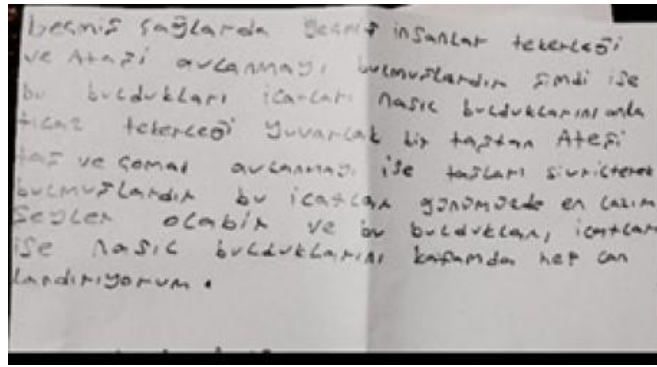 besmiş çağlarda geçmiş insanlar tekerleği
ve Ateşi avlanmayı bulmuşlardır şimdi ise
bu buldukları icatları nasıl bulduklarını anla
ticaz tekerleği yuvarlak bir taştan Ateşi
taş ve çomak avlanmayı ise taşları sivrilterek
bulmuşlardır bu icatlar günümüzde en lazım
Şeyler olabir ve bu buldukları, icatları
ise nasıl bulduklarını kafamda hep can
landırıyorum.